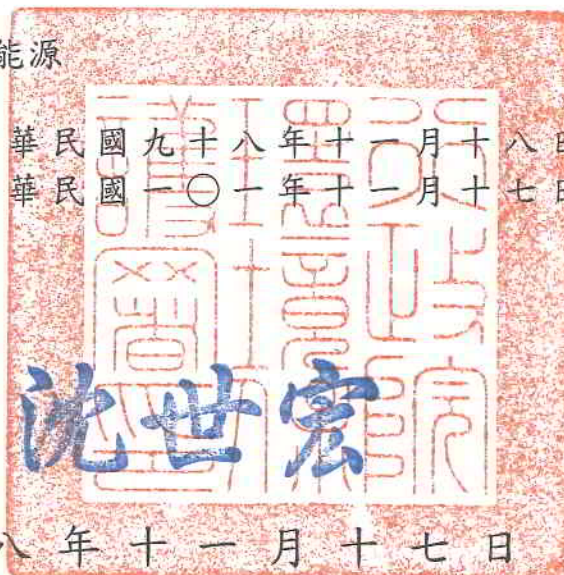 能源
華民國九十八年十一月十八日
華民國一〇一年十一月十七日
行政院環境保護署印
沈世宏
八年十一月十七日